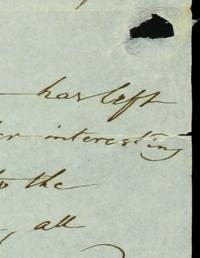 has left
interesting
the
all